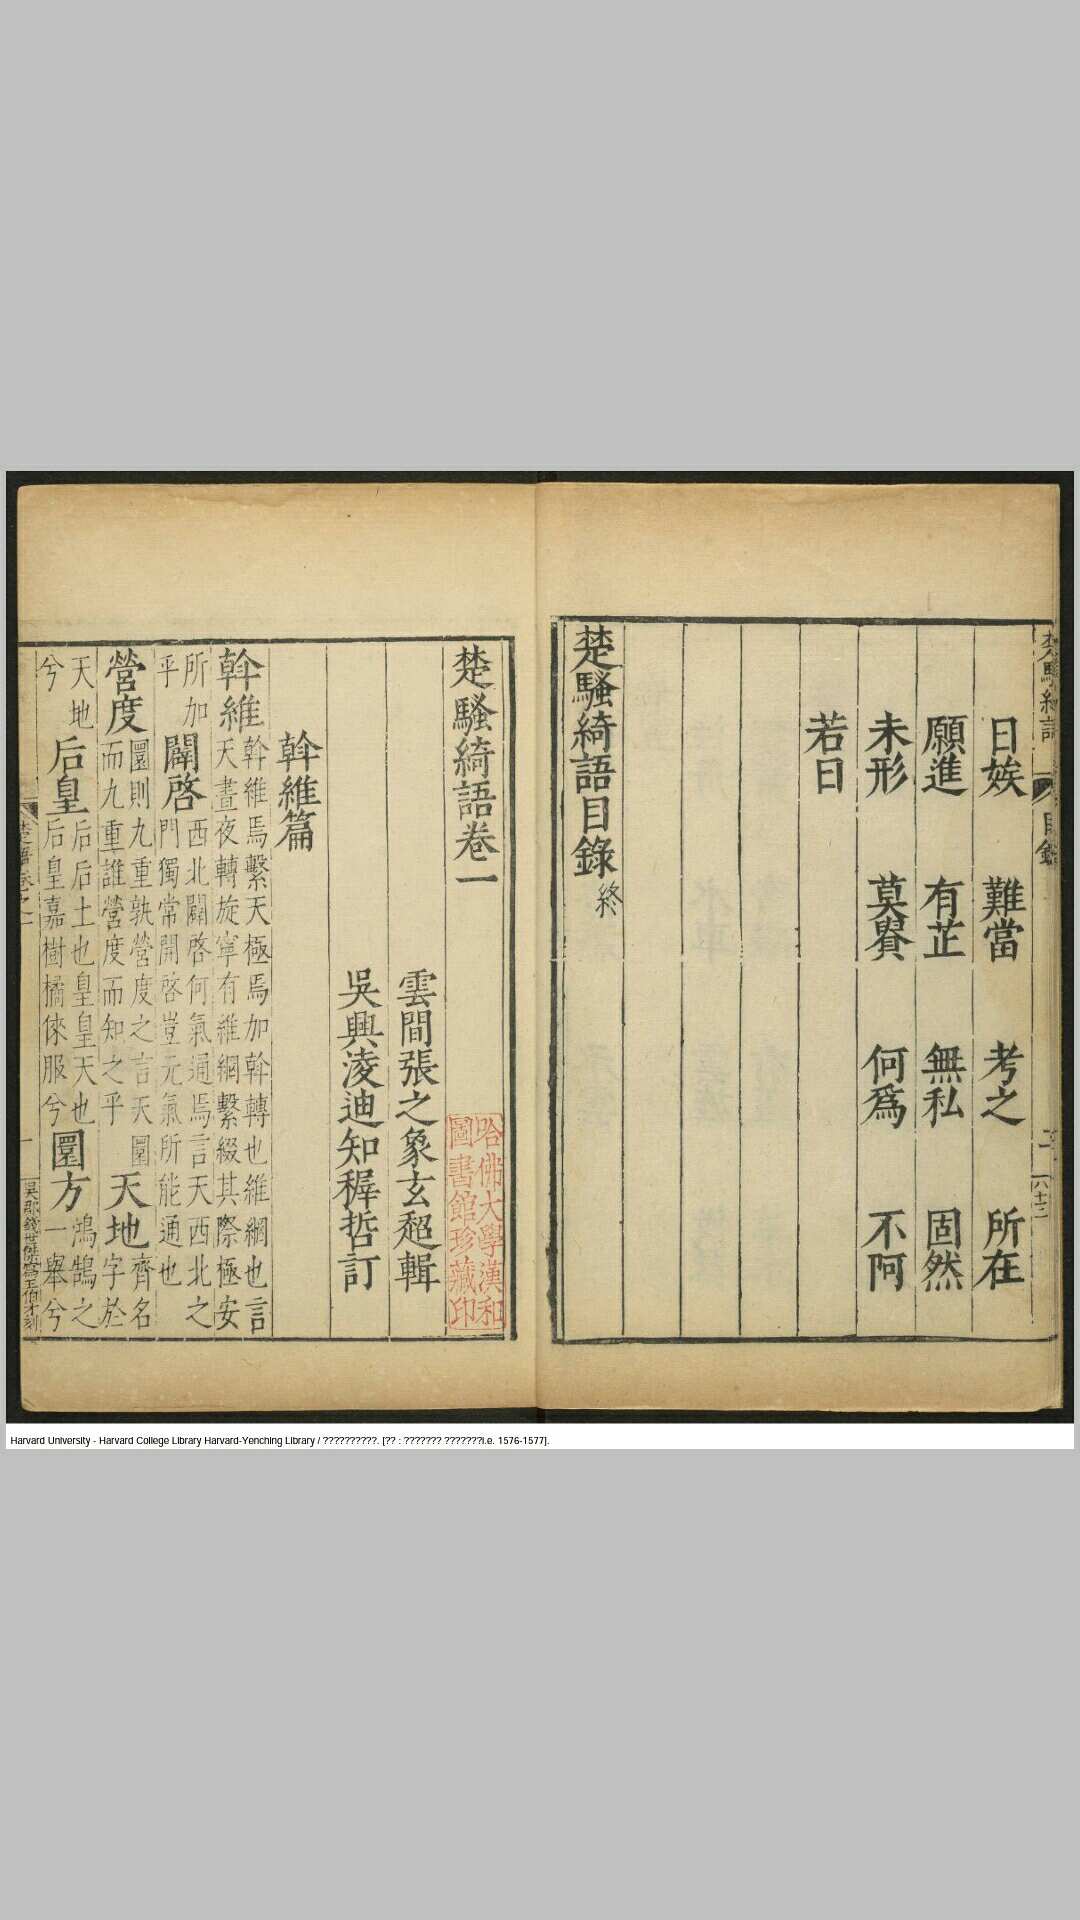 日娭 難當 考之 所在
願進 有芷 無私 固然
未形 莫䁖 何爲 不阿
若曰
楚騷綺語目錄終
楚騷綺語卷一
雲間張之象玄超輯
吳興淩迪知穉哲訂
哈佛大學漢和
圖書館珍藏印
斡維篇
斡維斡維焉繫天極焉加斡轉也維綱也言
天晝夜轉旋寧有維綱繫綴其際極安
所加
乎闢啓西北闢啓何氣通焉言天西北之
門獨常開啓豈元氣所能通也
營度圜則九重孰營度之言天圜
而九重誰營度而知之乎天地齊名
字於
天地
兮后皇后后土也皇皇天也
后皇嘉樹橘徠服兮圜方鴻鵠之
一舉兮
吳郡錢世傑寫王伯才刻
Harvard University - Harvard College Library Harvard-Yenching Library / ??????????. [?? : ??????? ???????i.e. 1576-1577].